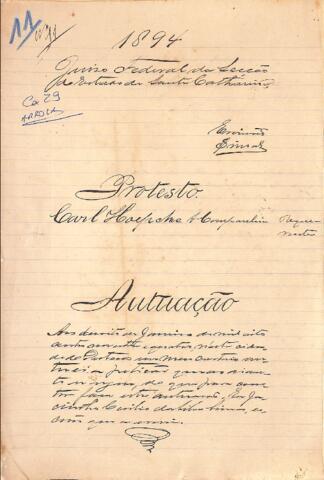 11
1894
Juizo Federal da Secção
do Estado de Santa Catharina
Ca 29
Escrivão
Protesto
Carl Hoepcke & Companhia Reque-
rentes
Autuação
Aos de Janeiro de mil oito
centos noventa e quatro nesta cida-
de do Desterro em meu Cartorio au-
tuei a petição que ao dian-
te segue, do que para cons-
tar faço esta autuação. Eu
que o escrevi.